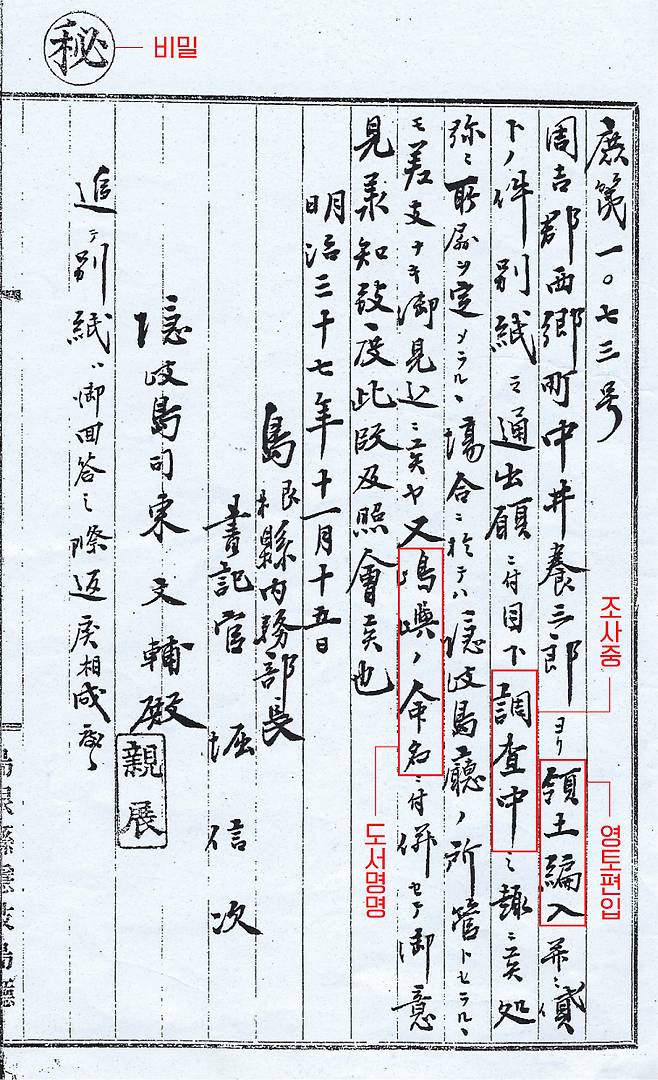 秘
비밀
庶第一〇七三号
周吉郡西郷町中井養三郎ヨリ領土編入并ニ貸
下ノ件別紙之通出願ニ付目下調査中之趣ニ候処
弥々所属ヲ定メラルヽ場合ニ於テハ隠岐島廳ノ所管トセラルヽ
モ差支ナキ御見込ニ候ヤ又島嶼ノ命名ニ付併セテ御意
見承知致度此段及照會候也
明治三十七年十一月十五日
島根縣内務部長
書記官 堀信次
隠岐島司東文輔殿
親展
追テ別紙ハ御回答之際返戻相成度
조사중
영토편입
도서명명
島根縣廳